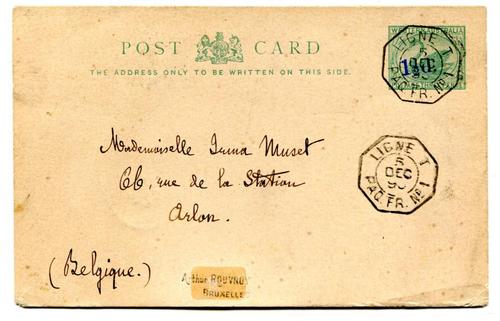 POST CARD
THE ADDRESS ONLY TO BE WRITTEN ON THIS SIDE.
WESTERN AUSTRALIA
LIGNE T
5
DEC
90
PAQ. FR. Nº1
Mademoiselle Irma Muset
66, rue de la Station
Arlon.
(Belgique.)
LIGNE T
5
DEC
90
PAQ. FR. Nº1
Arthur ROUVROY
BRUXELLES